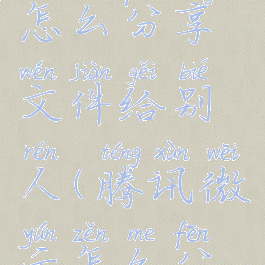 怎么分享
wén jiàn gěi bié
文件给别
rén téng xùn wēi
人(腾讯微
yún zěn me fēn